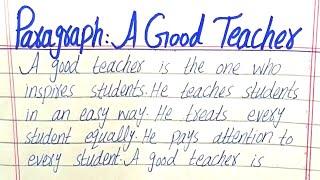 Paragraph: A Good Teacher
A good teacher is the one who
inspires students. He teaches students
in an easy way. He treats every
student equally. He pays attention to
every student. A good teacher is